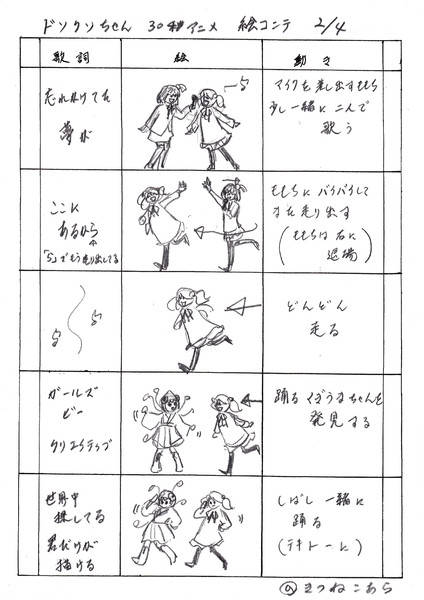 ドンクンちゃん 30秒アニメ 絵コンテ 2/4
歌詞 絵 動き
忘れかけてた
夢が
マイクを差し出すももち
少し一緒に二人で
歌う
ここに
あるから
「ら」でもう走り出してる
ももちにバイバイして
また走り出す
(ももちは右に
退場)
どんどん
走る
ガールズ
ビー
クリエイティブ
踊るイぬうまちゃんを
発見する
世界中
探してる
君だけが
描ける
しばし一緒に
踊る
(テキトーに)
きつねこあら